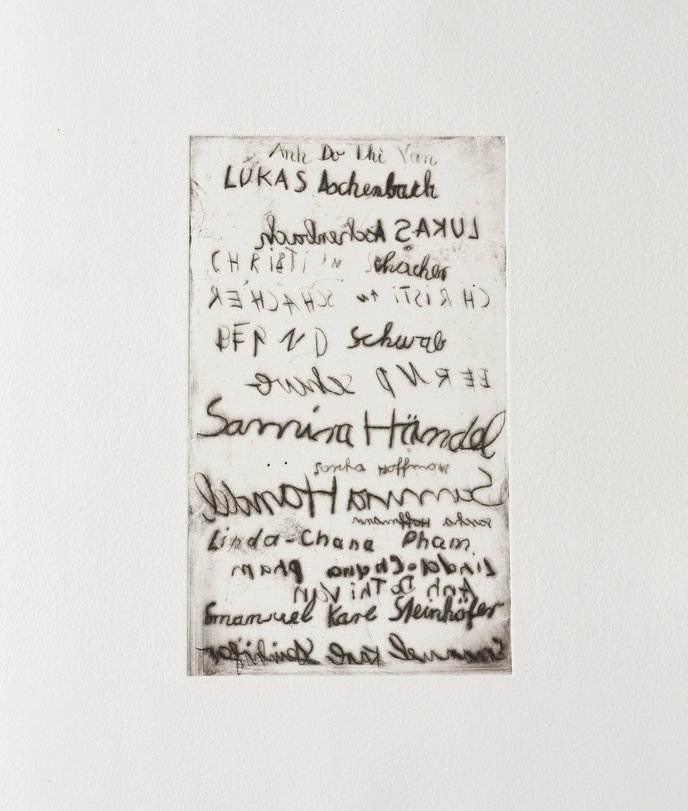 Anh Do Thi Van
LUKAS Aschenbach
LUKAS Aschenbach
CHRISTI Schacher
CHRISTian SCHACHER
Schwab
BERND Schwb
Samira Händel
sascha Hoffmann
Samira Händel
sascha Hoffmann
Linda-Chana Pham
Linda-Chana pham
Anh Do Thi Van
Emanuel Karl Steinhöfer
Emanuel Karl Steinhöfer